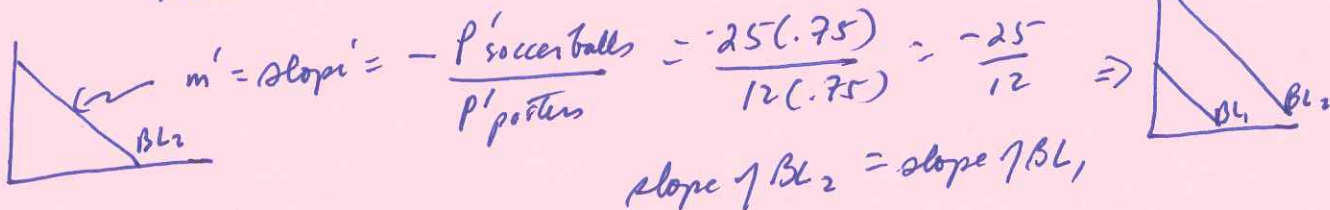 m' = slope' = - P' soccer balls / P' posters = -25(.75) / 12(.75) = -25 / 12 ⇒
BL2
BL1 BL2
slope of BL2 = slope of BL1